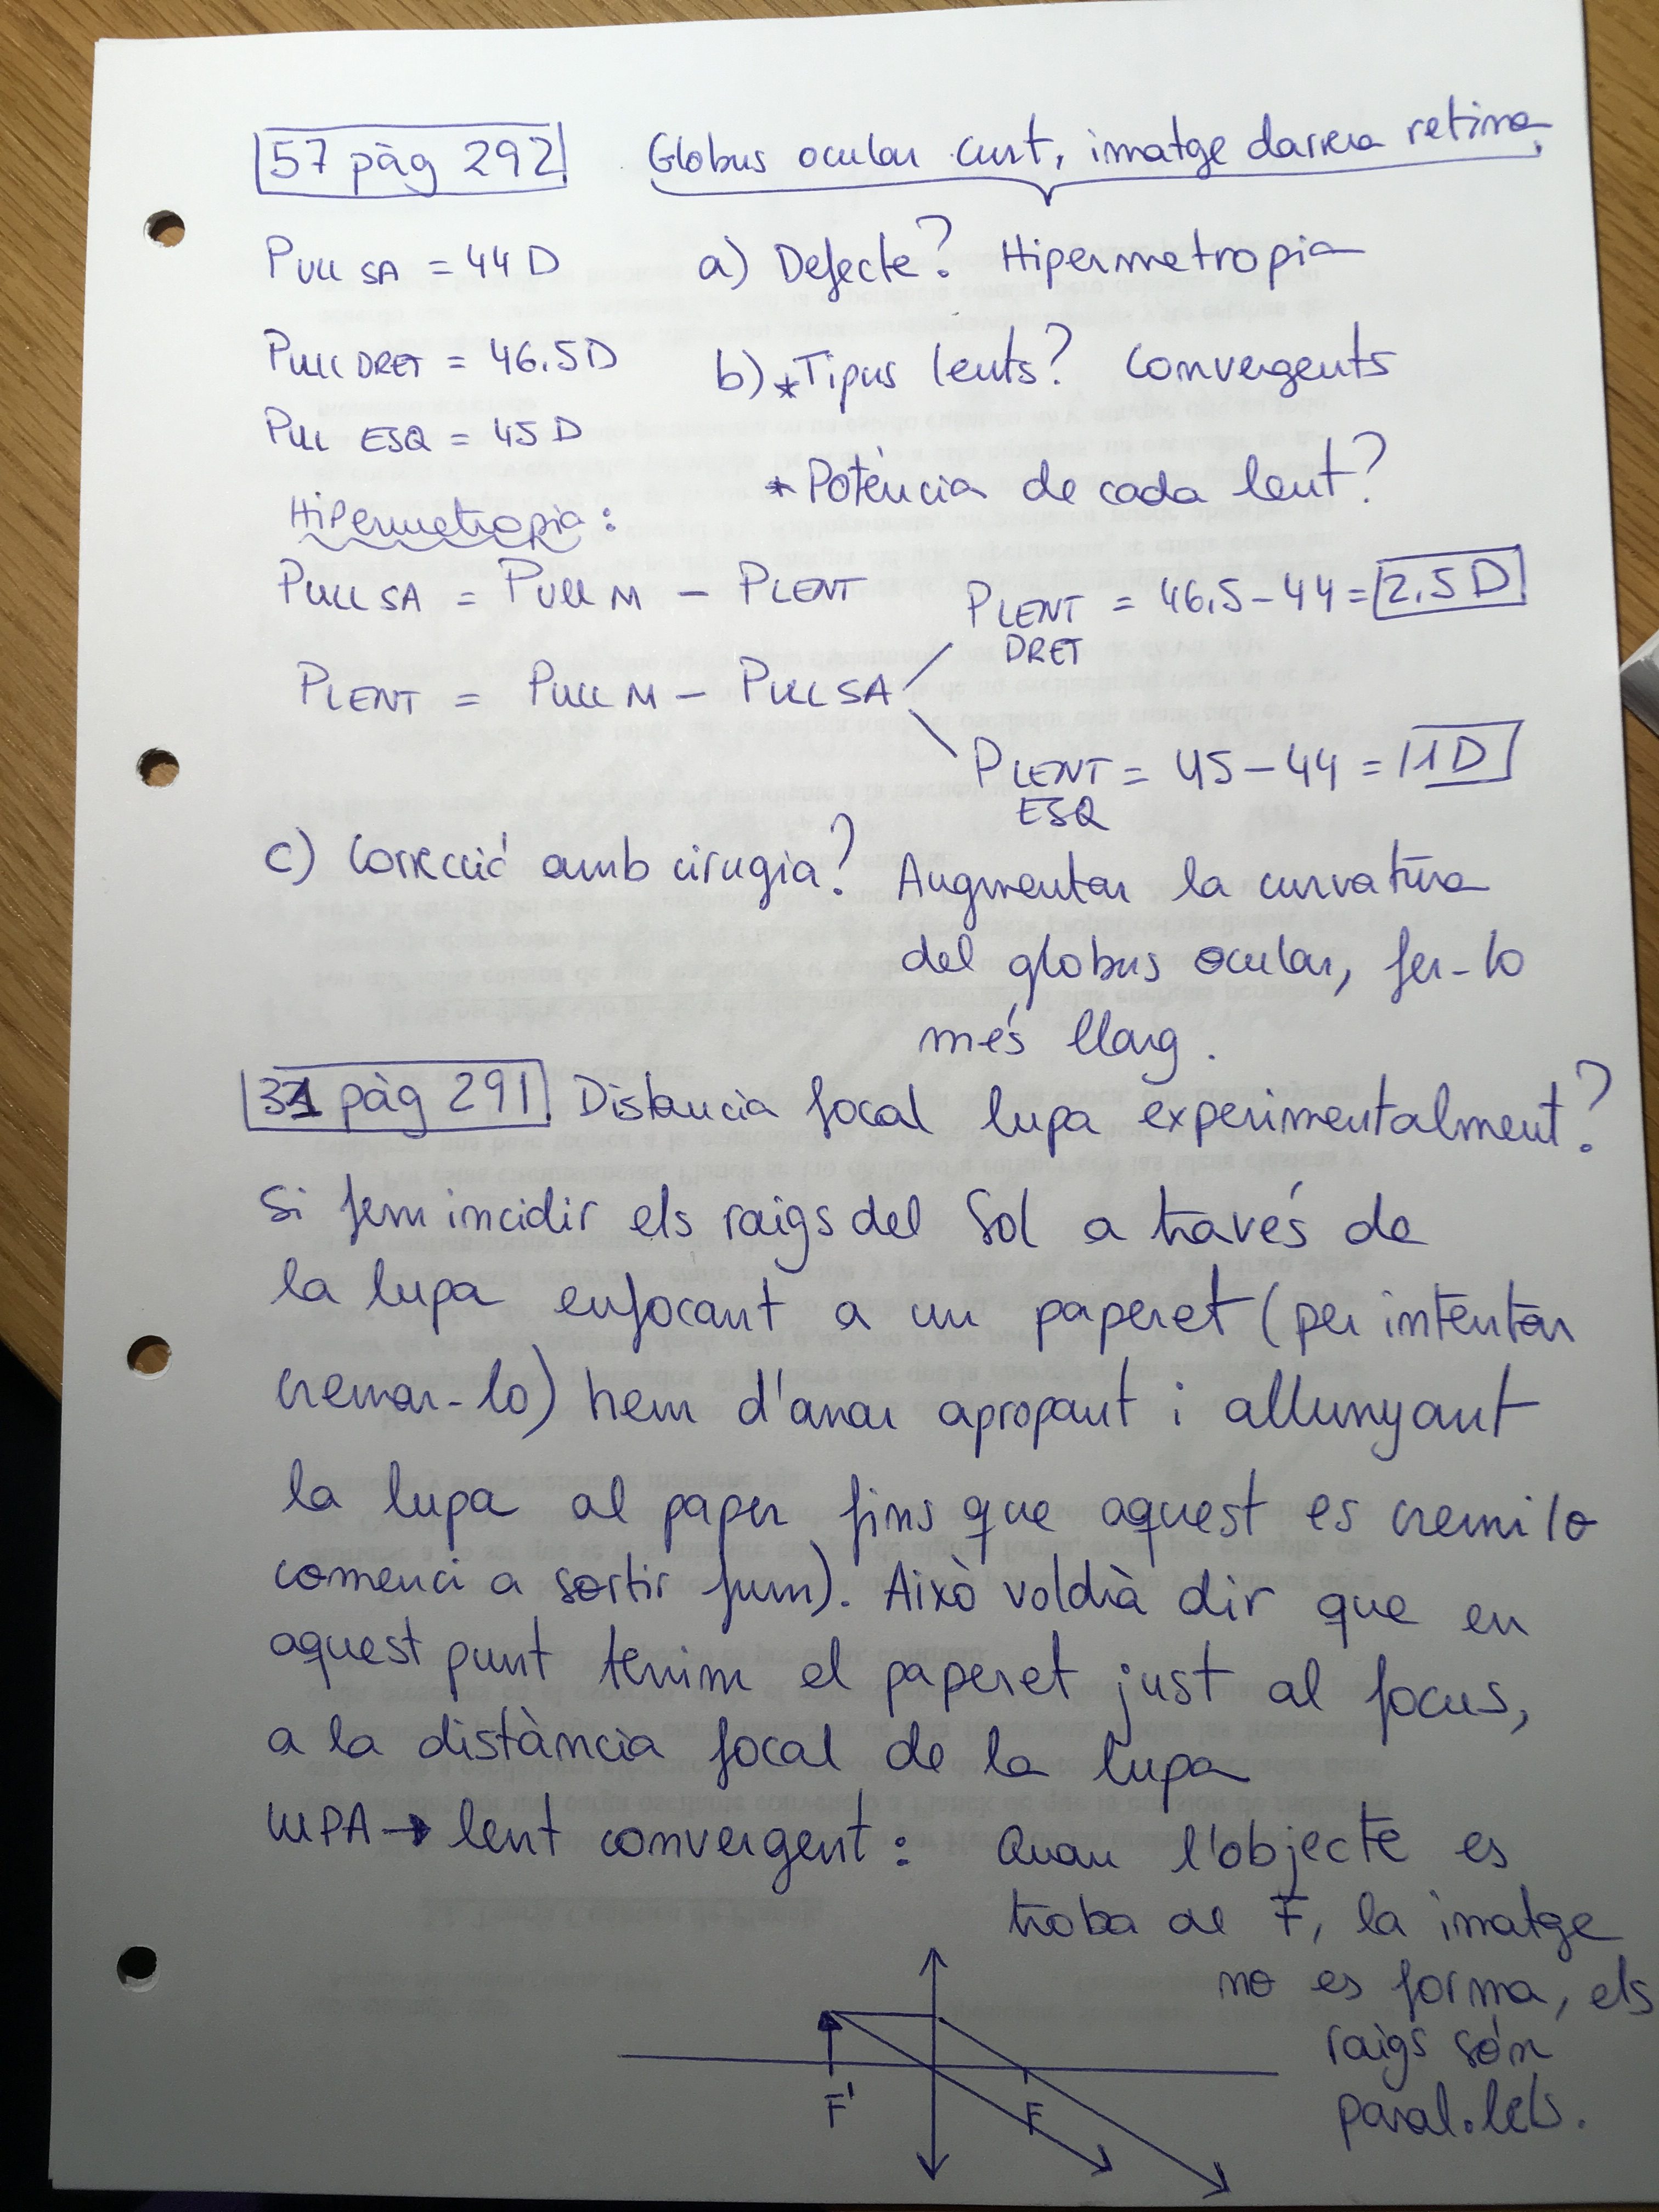 57 pàg 292
Globus ocular curt, imatge darrera retina
PULL SA = 44 D
a) Defecte? Hipermetropia
PULL DRET = 46.5 D
b) * Tipus lents? Convergents
PULL ESQ = 45 D
* Potència de cada lent?
Hipermetropia:
PULL SA = PULL M - PLENT
PLENT DRET = 46,5 - 44 = 2,5 D
PLENT = PULL M - PULL SA
PLENT ESQ = 45 - 44 = 1 D
c) Correcció amb cirugia? Augmentar la curvatura
del globus ocular, fer-lo
més llarg.
31 pàg 291 Distancia focal lupa experimentalment?
Si fem incidir els raigs del Sol a través de
la lupa enfocant a un paperet (per intentar
cremar-lo) hem d'anar apropant i allunyant
la lupa al paper fins que aquest es cremi (o
comenci a sortir fum). Això voldrà dir que en
aquest punt tenim el paperet just al focus,
a la distància focal de la lupa
LUPA → lent convergent: Quan l'objecte es
troba al F, la imatge
no es forma, els
raigs són
paral·lels.
F'
F